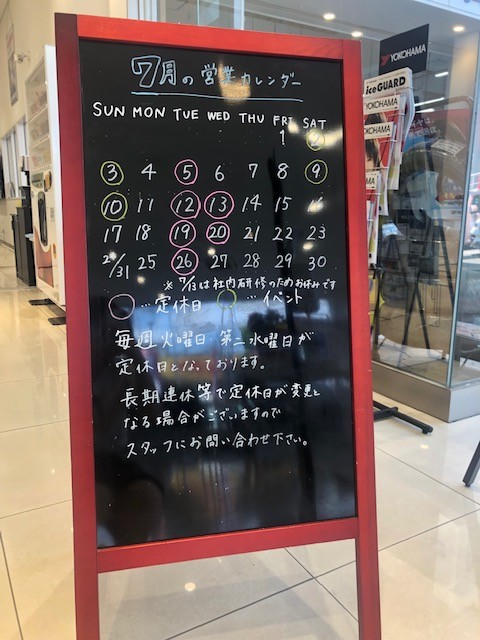 7月の営業カレンダー
SUN MON TUE WED THU FRI SAT
1 2
3 4 5 6 7 8 9
10 11 12 13 14 15 16
17 18 19 20 21 22 23
24/31 25 26 27 28 29 30
※ 7/13は社内研修のためお休みです
○…定休日 ○…イベント
毎週火曜日 第三水曜日が
定休日となっております。
長期連休等で定休日が変更と
なる場合がございますので
スタッフにお問い合わせ下さい。
YOKOHAMA
iceGUARD
YOKOHAMA
YOKOHAMA